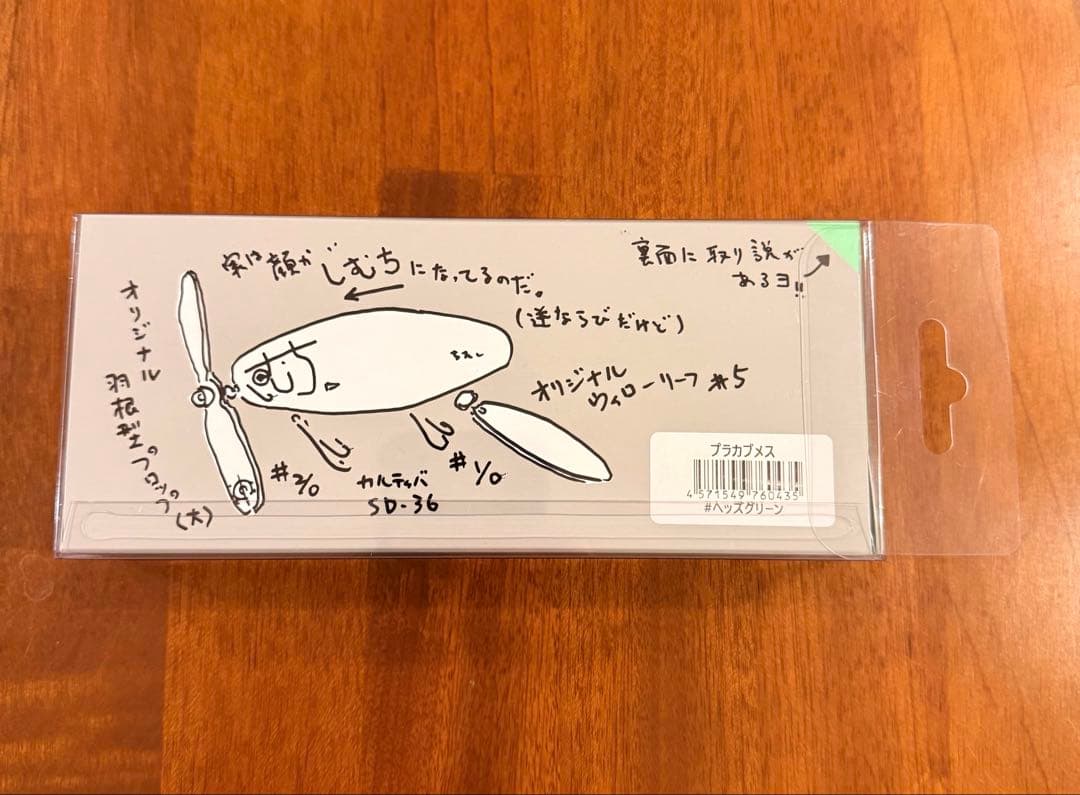 実は顔がじむちになってるのだ。
(逆ならびだけど)
裏面に取り説が
あるヨ!!
オリジナル
羽根モノプロップ
(大)
オリジナル
ウィローリーフ #5
#2/0
カルティバ
SD-36
#1/0
プラカブメス
4 571549 760435
#ヘッズグリーン